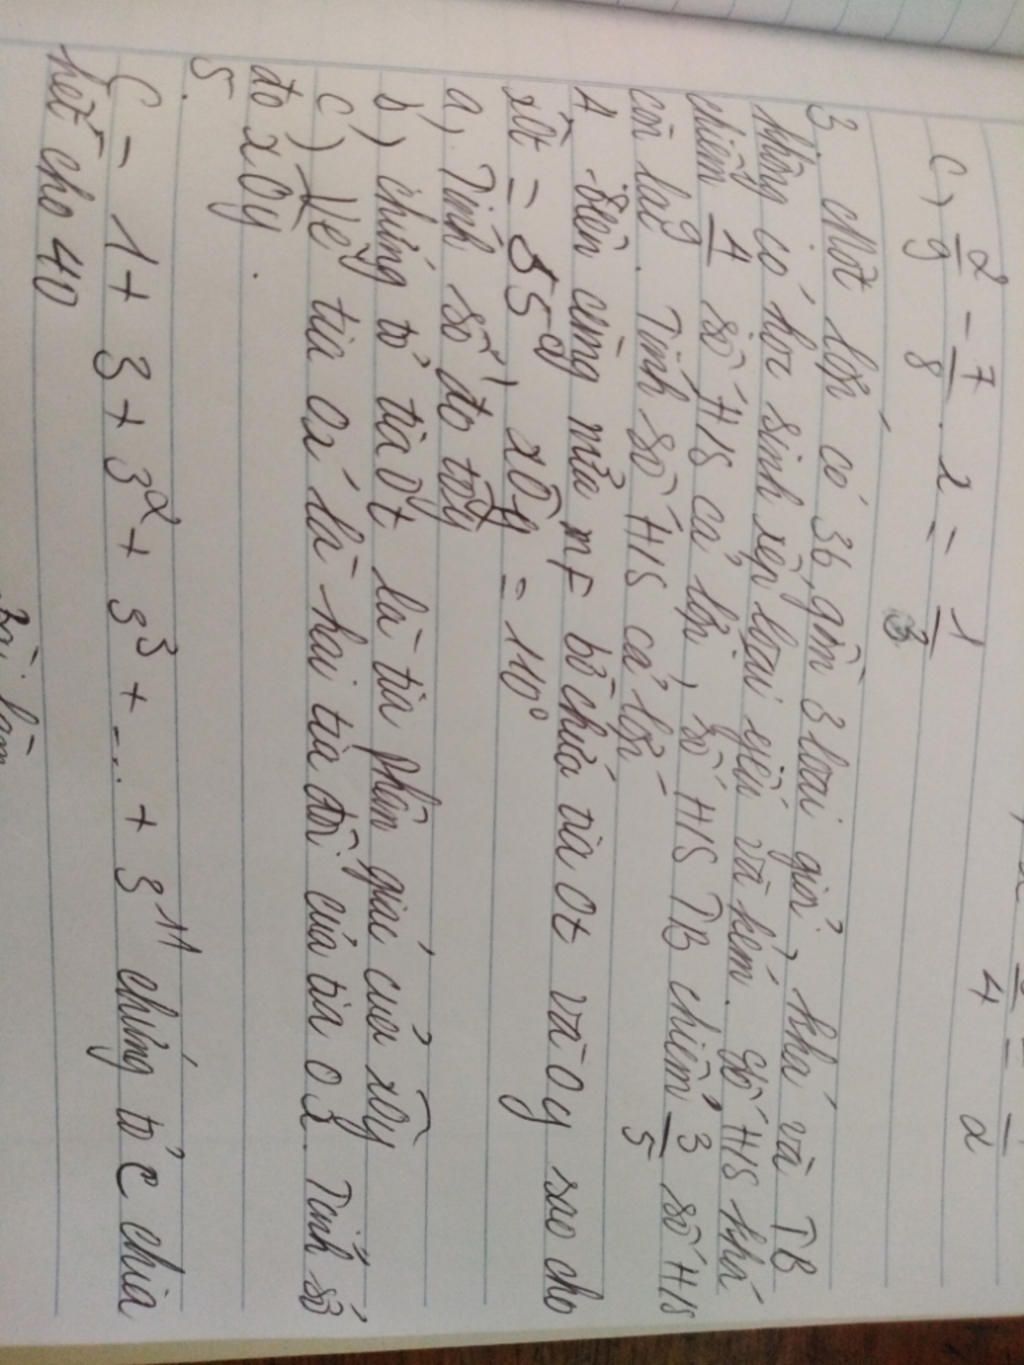 4 2
c) 2/9 - 7/8 . x = 1/3
3. Một lớp có 36, gồm 3 loại giỏi, khá và TB
không có học sinh xếp loại yếu và kém. Số HS khá
chiếm số HS cả lớp, số HS TB chiếm 3/5 số HS
còn lại. Tính số HS cả lớp
4 Trên cùng mửa mF bờ chứa tia Ot và Oy sao cho
xOt = 55º, xOy = 110º
a), Tính số đo tOy
b), chứng tỏ tia Ot là tia phân giác của xOy
c) Vẽ tia Ox' là hai tia đối của tia Ox. Tính số
đo x'Oy.
5.
C = 1 + 3 + 3² + 3³ + ... + 3¹¹ chứng tỏ C chia
hết cho 40
Bài làm